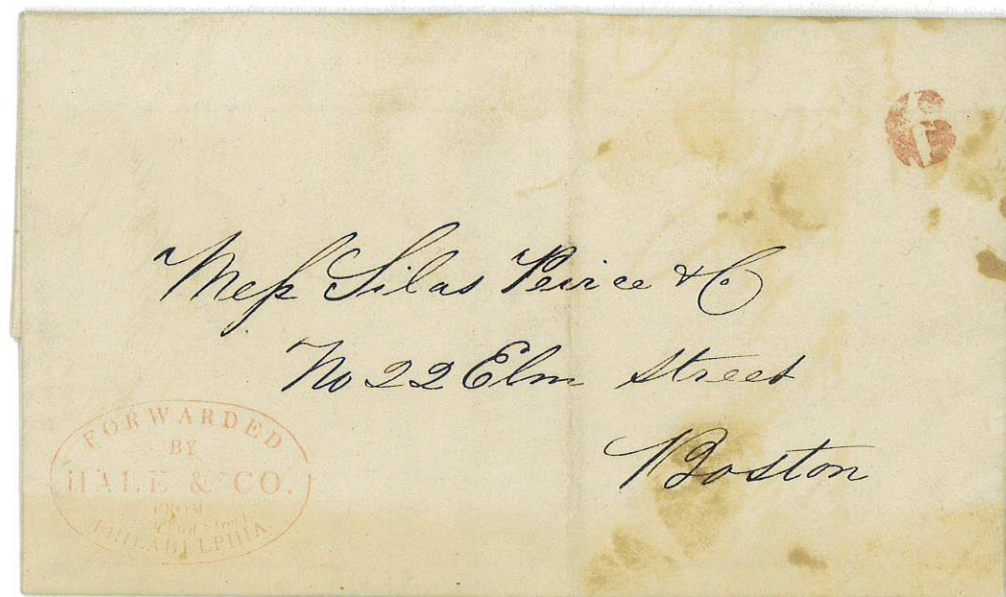 6
Mess Silas Peirce & Co
No 22 Elm Street
Boston
FORWARDED
BY
HALE & CO.
FROM
Street
PHILADELPHIA.